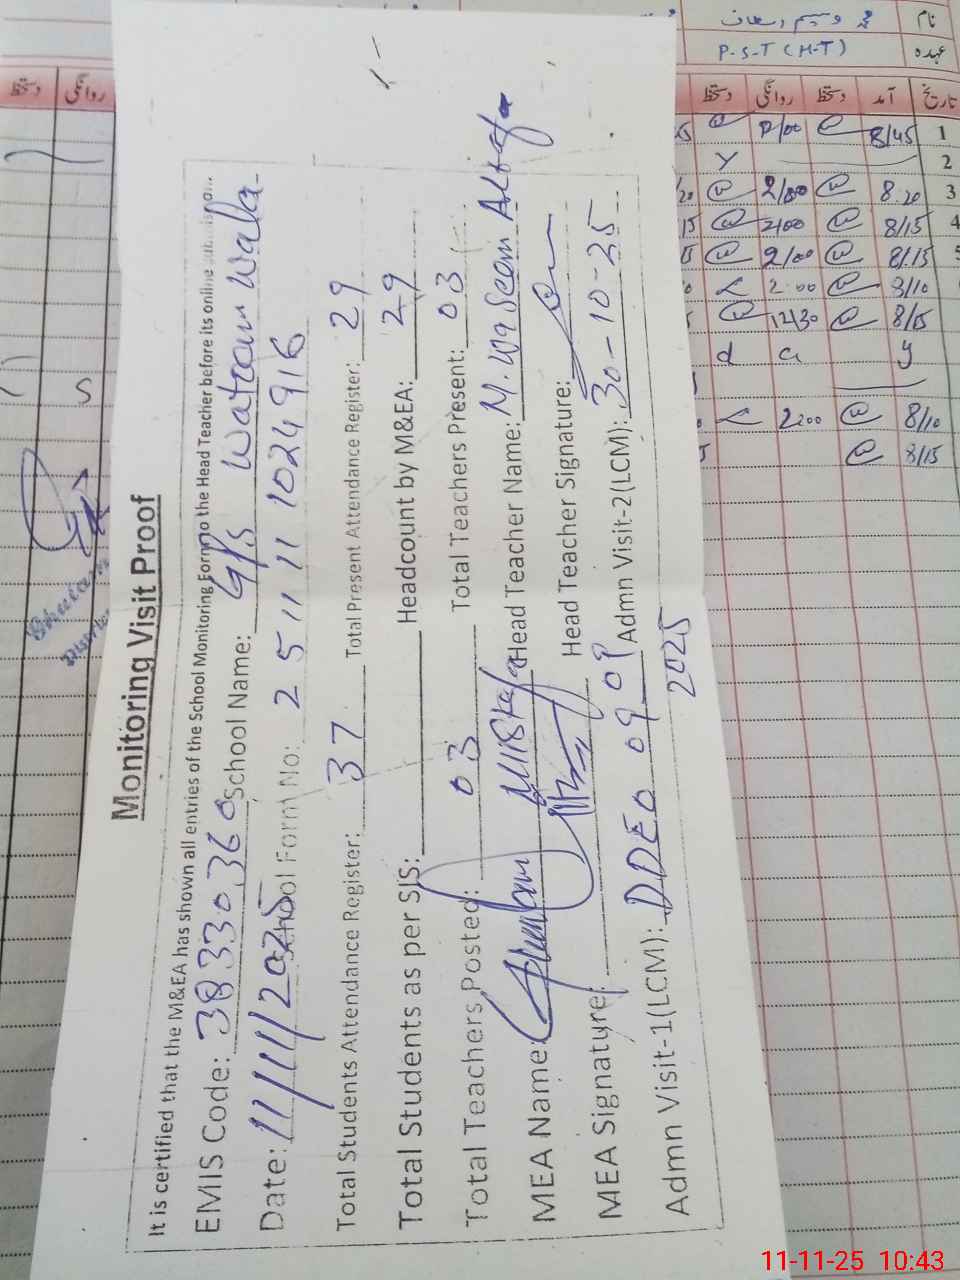 Monitoring Visit Proof
It is certified that the M&EA has shown all entries of the School Monitoring Form to the Head Teacher before its online
EMIS Code: 38330360 School Name: G/P/S Watoan Wala
Date: 11/11/2025 School Form No: 25 11 11 1024916
Total Students Attendance Register: 37 Total Present Attendance Register: 29
Total Students as per SIS: Headcount by M&EA: 29
Total Teachers Posted: 03 Total Teachers Present: 03
MEA Name: Ghulam Mustafa Head Teacher Name: M. Waseem Altaf
MEA Signature: Head Teacher Signature:
Admn Visit-1(LCM): DDEO 09 09 2025 Admn Visit-2(LCM): 30-10-25
نام محمد وسیم الطاف
عہدہ P-S-T (H-T)
تاریخ آمد دستخط روانگی دستخط
روانگی دستخط
1 8/45
2
3 8.20 2/00
4 8/15 2/00
8/15 2/00
8/10 2.00
8/15 12/30
8/10 2.00
8/15
11-11-25 10:43